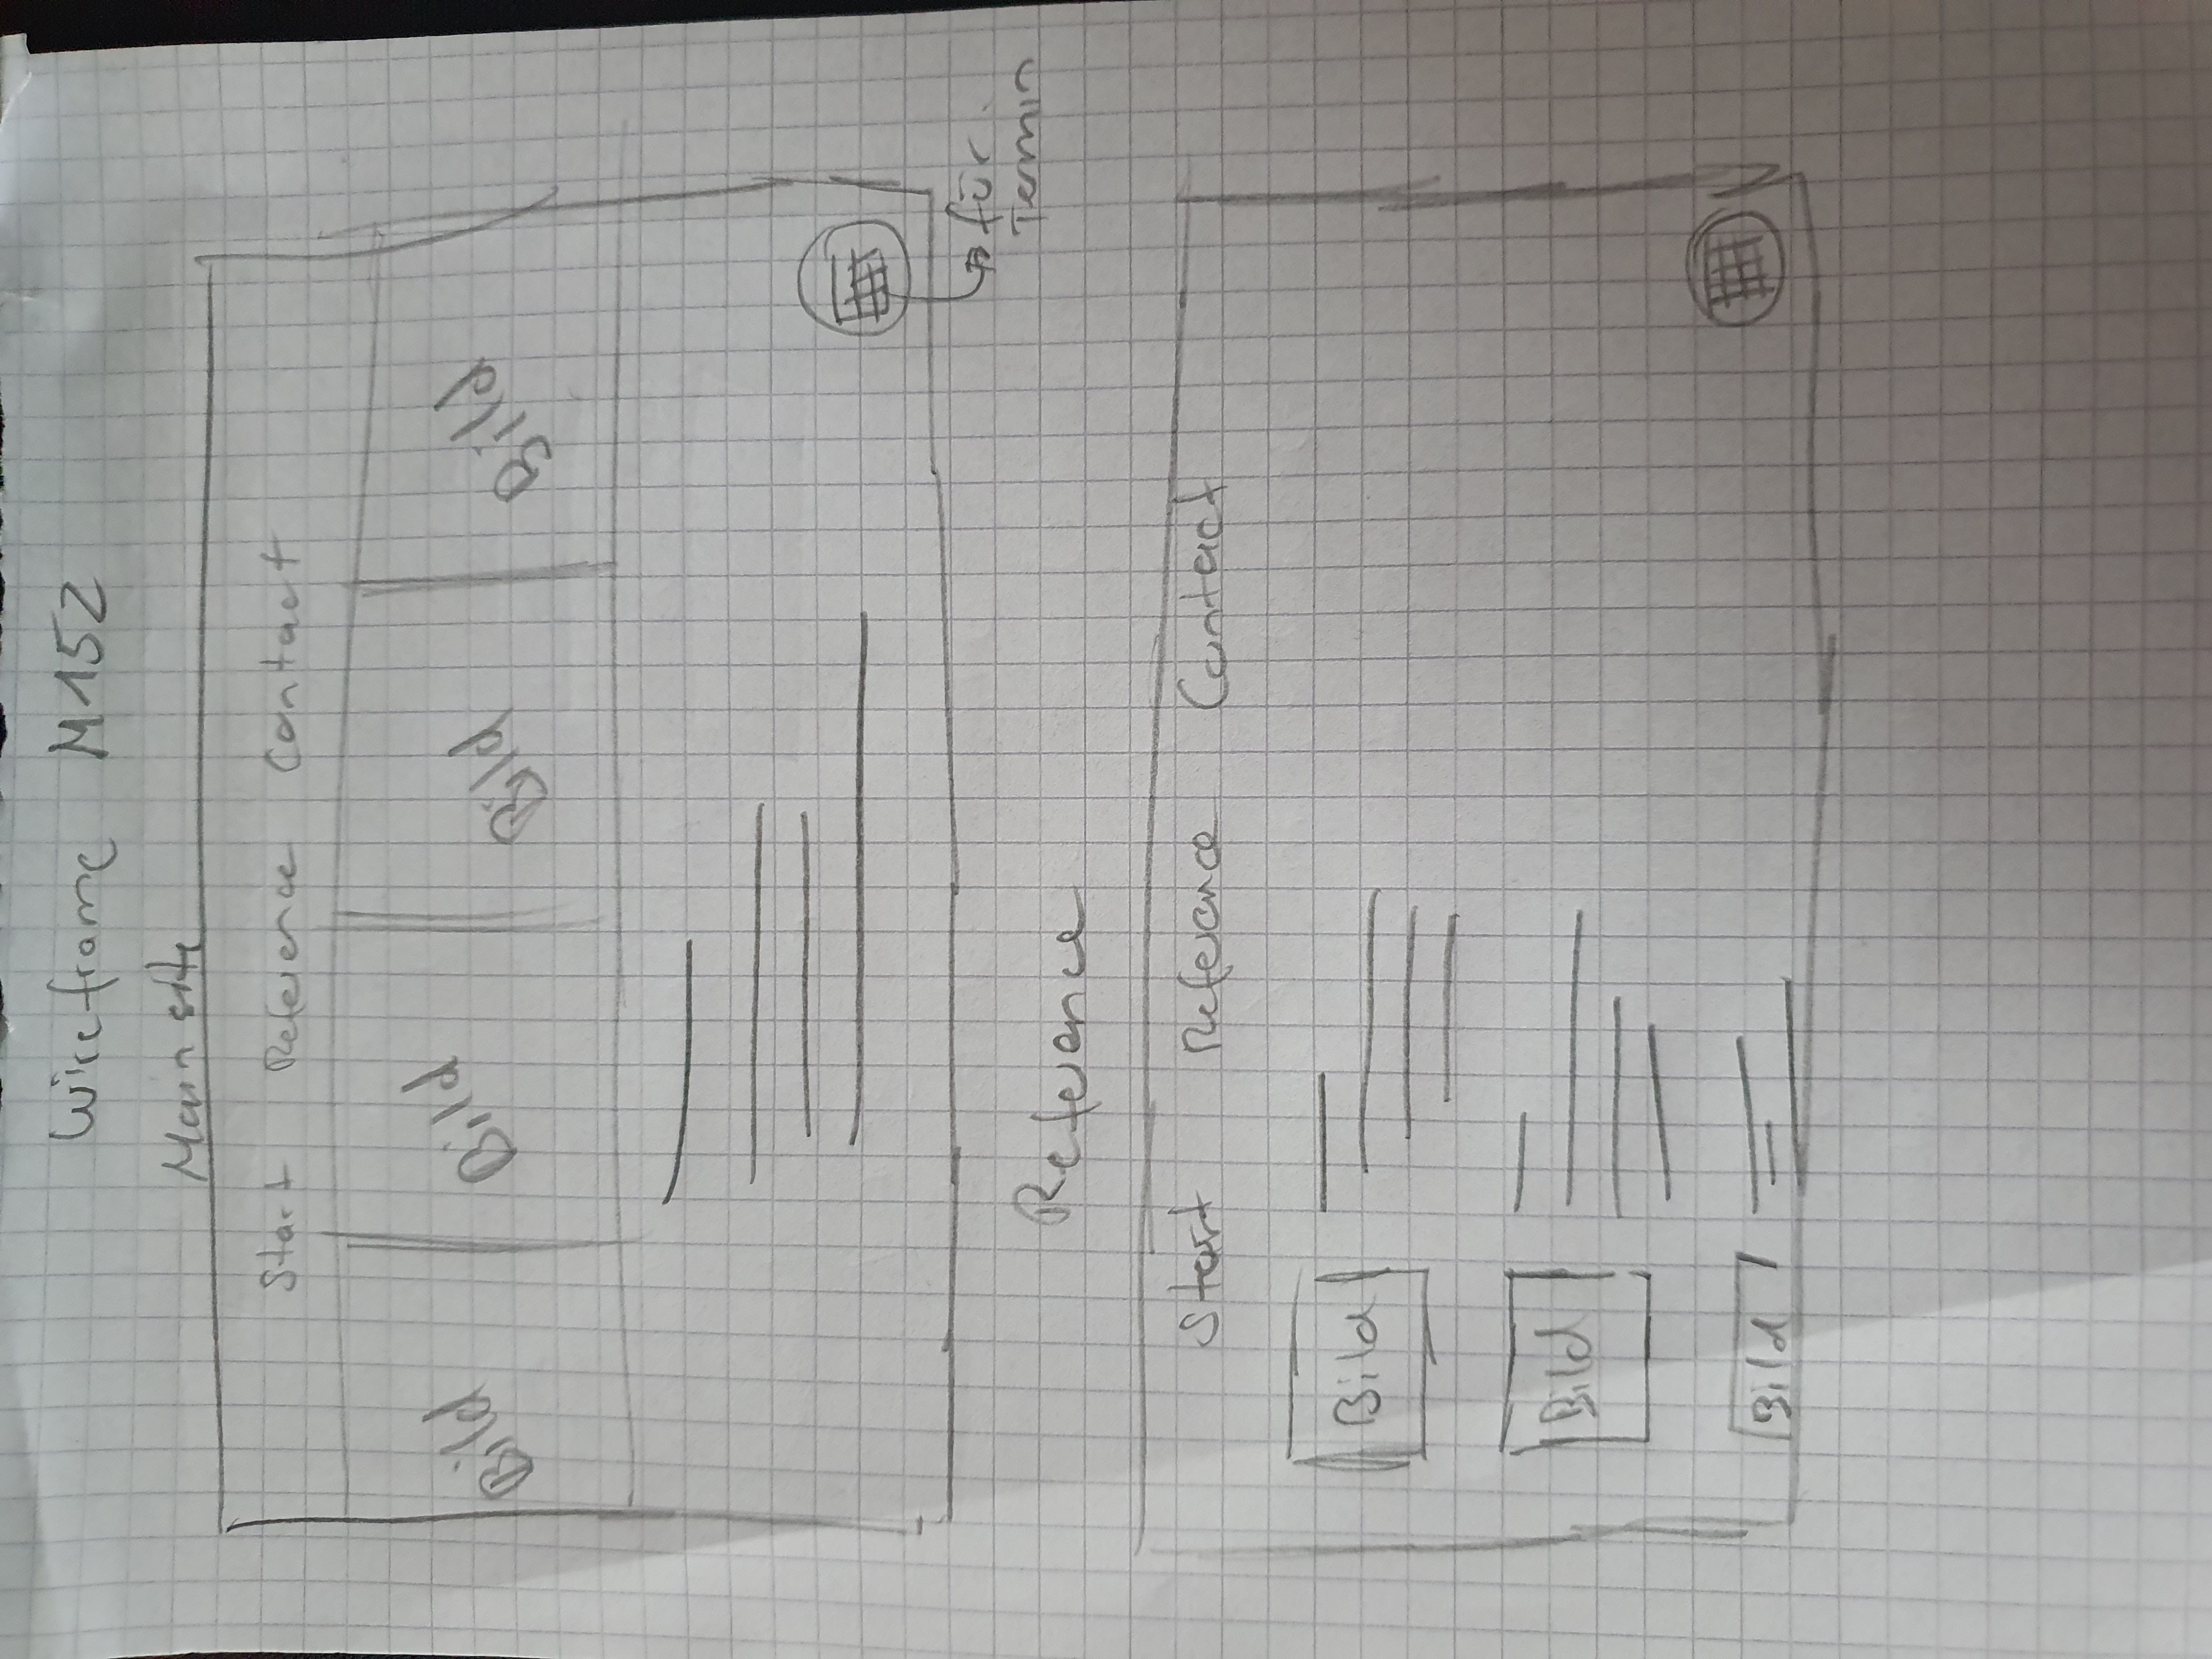 Wireframe M152
Main site
Start Reference Contact
Bild Bild Bild Bild
für
Termin
Reference
Start Reference Contact
Bild
Bild
Bild